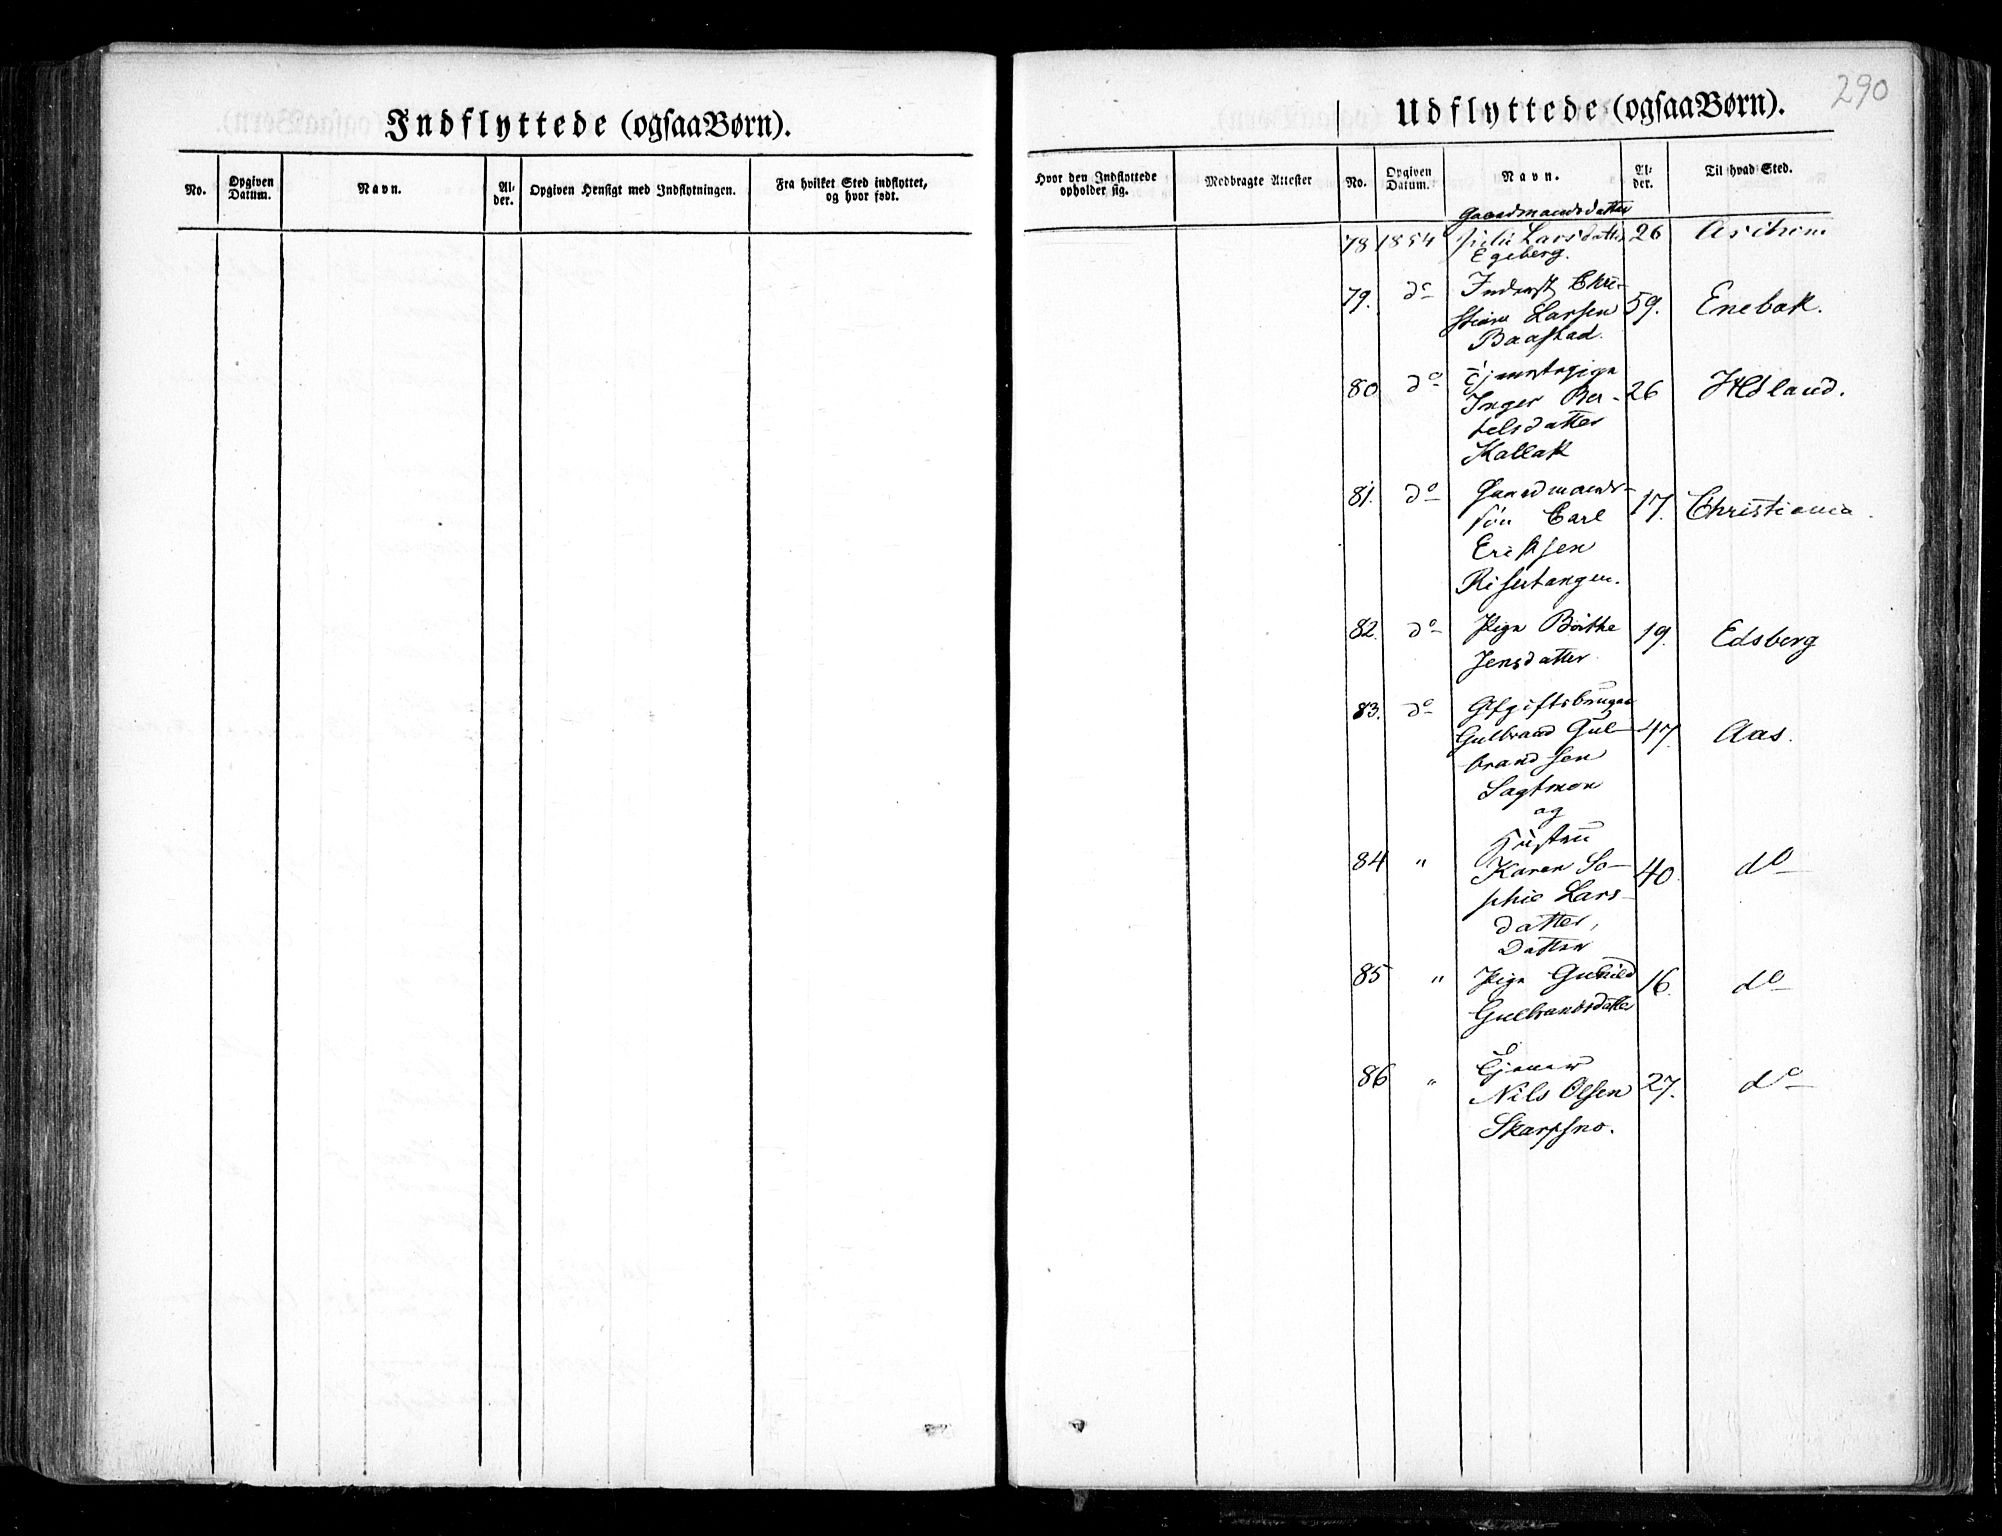 290
Indflyttede (ogsaa Børn).
No.
Opgiven Datum.
Navn.
Al-der.
Opgiven Hensigt med Indflytningen.
Fra hvilket Sted indflyttet, og hvor født.
Hvor den Indflyttede opholder sig.
Medbragte Attester
Udflyttede (ogsaa Børn).
No.
Opgiven Datum.
Navn.
Al-der.
Til hvad Sted.
Gaardmandsdatter
78 1854 Julie Larsdatter 26
Egeberg.
79. do Inderst Chri-
stian Larsen 59. Enebak.
Baastad.
80 do Tjenestepige
Inger Ber- 26 Høland.
telsdatter
Kallak
81. do Gaardmands-
søn Carl 17. Christiania.
Eriksen
Risertangen.
82. do Pige Börthe 19. Edsberg
Jensdatter
83. do Afgiftsbruger
Gulbrand Gul- 47. Aas.
brandsen
Sagtmon
og
Hustru
84 " Karen So- 40. do
phie Lars-
datter,
Datter
85 " Pige Gunild 16. do
Gulbrandsdatter
86 "
Nils Olsen 27. do
Skarpsno.